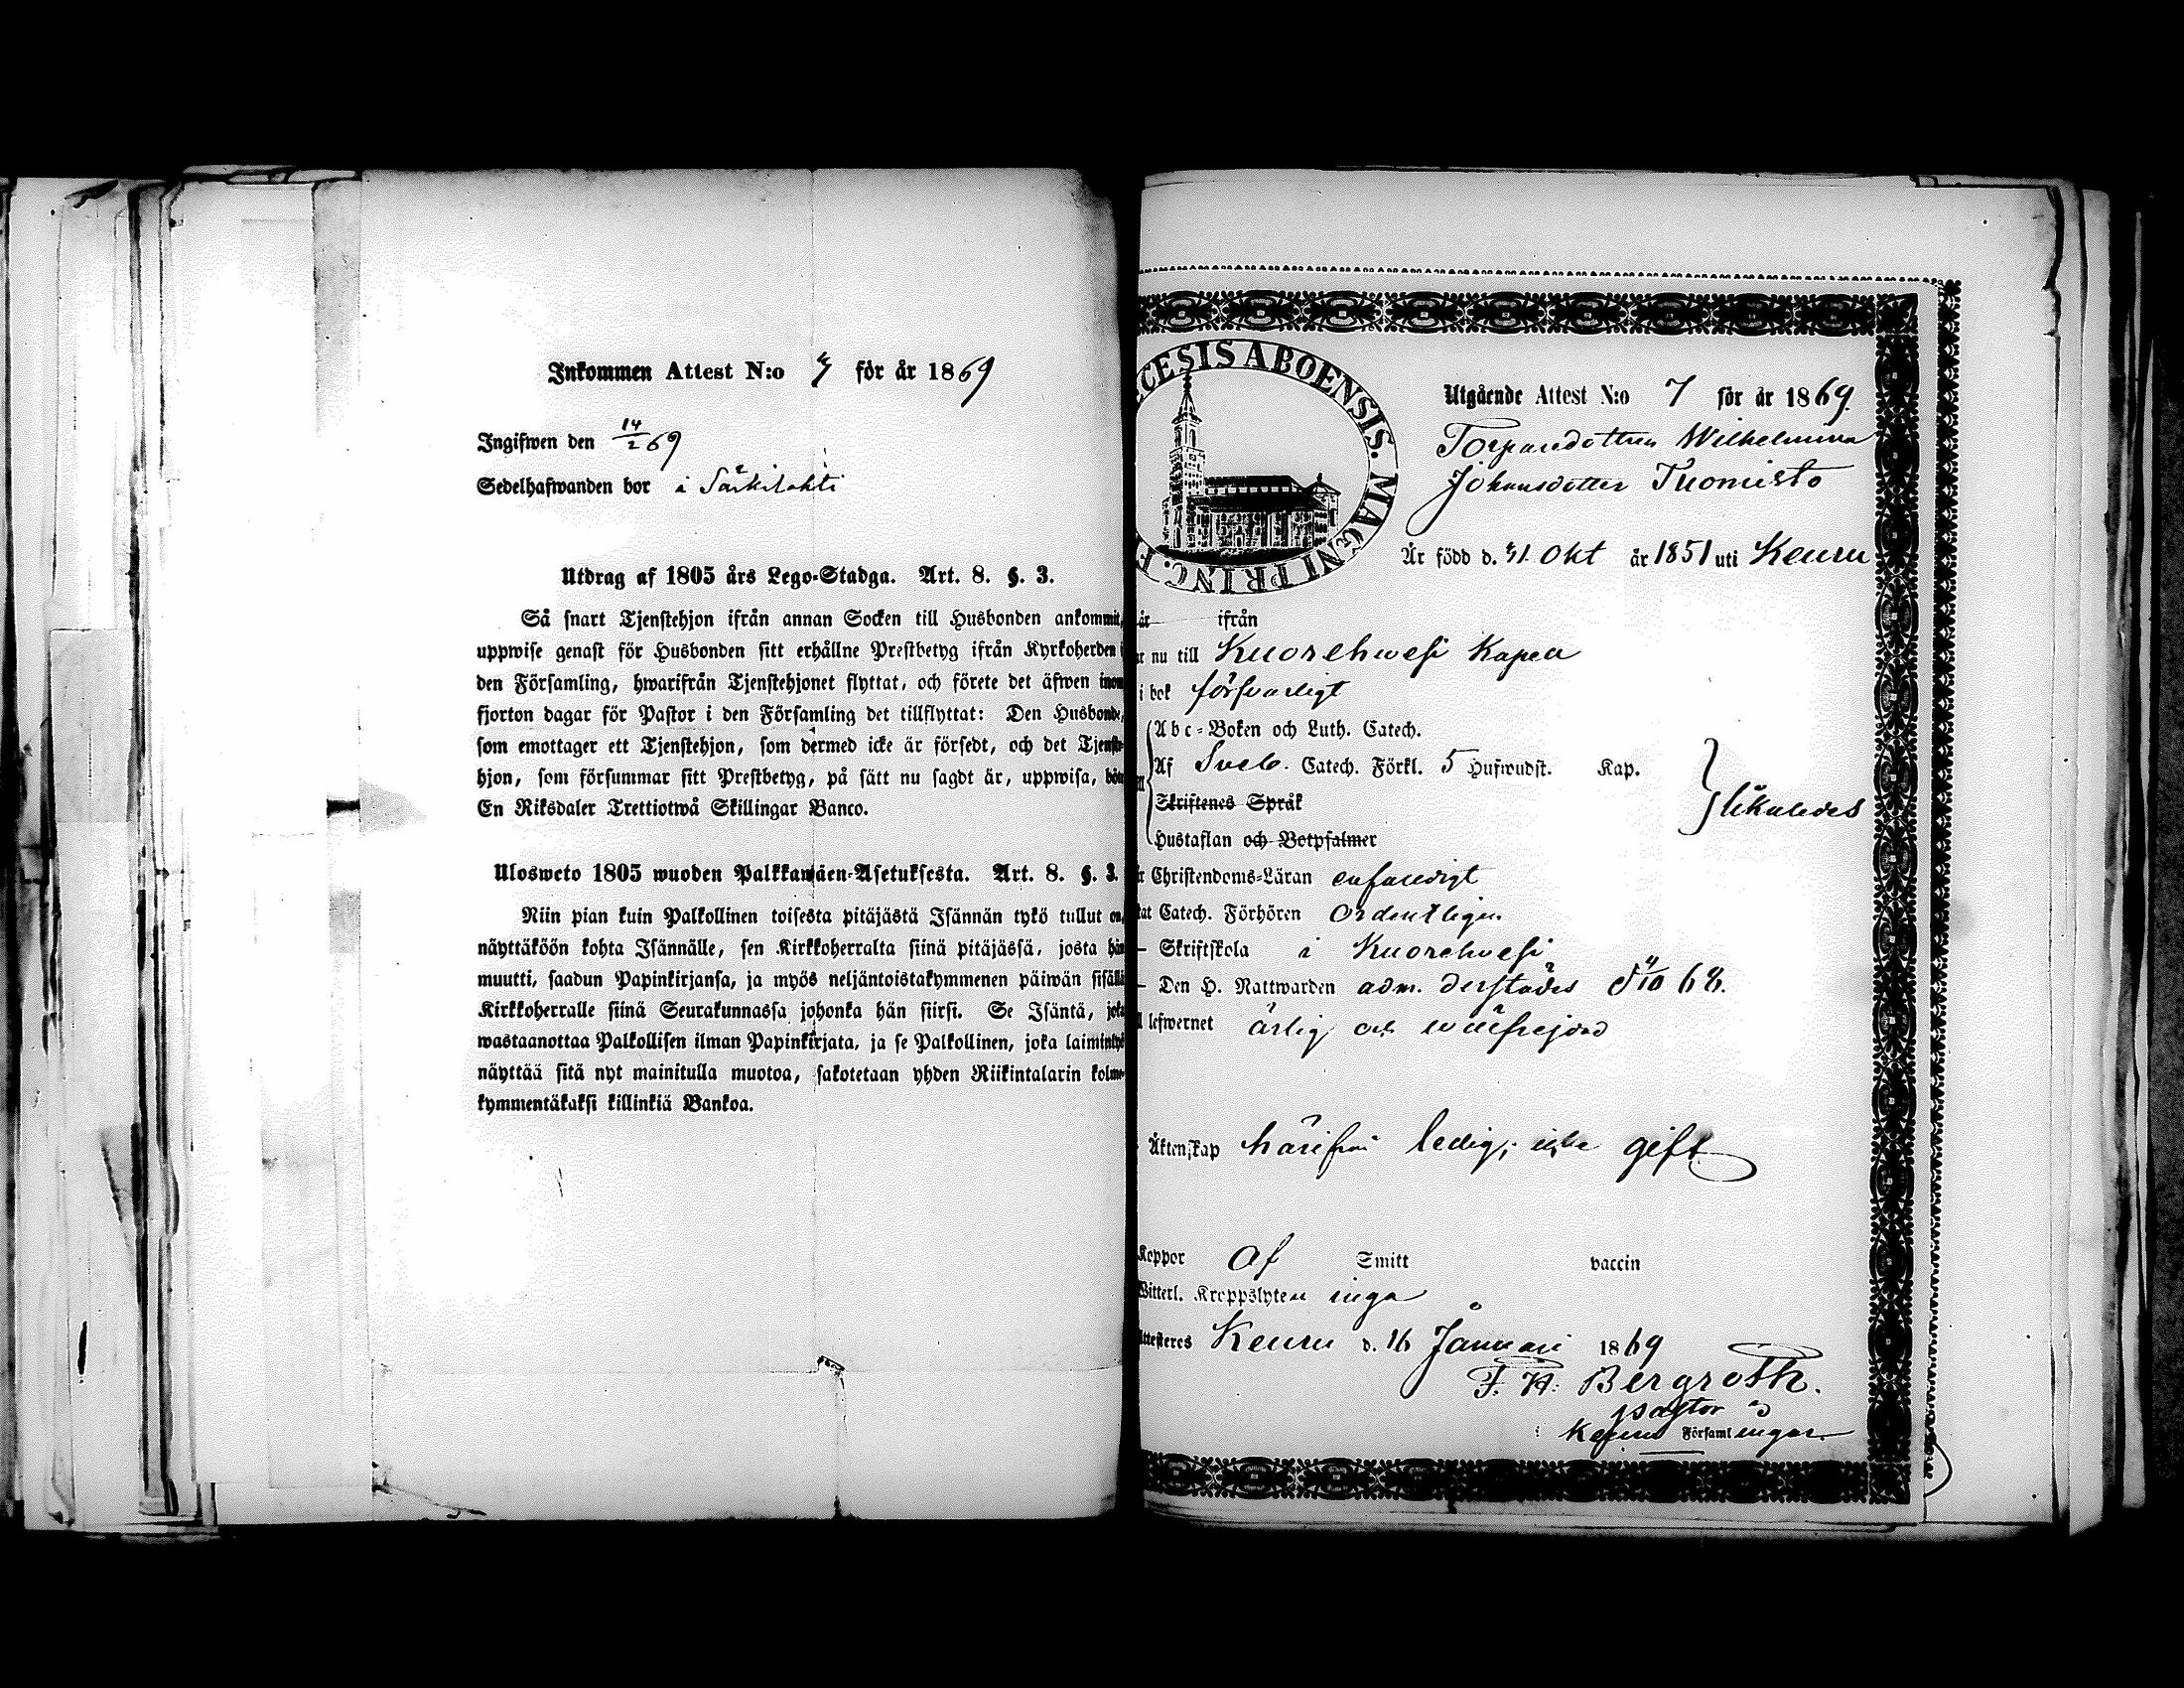 Inkommen Attest N:o för år 1869
Ingifwen den 14/2 69
Sedelhafwanden bor i Särkilahti
Utdrag af 1805 års Lego-Stadga. Art. 8. §. 3.
Så snart Tjenstehjon ifrån annan Socken till Husbonden ankommit,
uppwise genast för Husbonden sitt erhållne Prestbetyg ifrån Kyrkoherden i
den Församling, hwarifrån Tjenstehjonet flyttat, och förete det äfwen inom
fjorton dagar för Pastor i den Församling det tillflyttat: Den Husbonde,
som emottager ett Tjenstehjon, som dermed icke är försedt, och det Tjenste-
hjon, som försummar sitt Prestbetyg, på sätt nu sagdt är, uppwisa, böte
En Riksdaler Trettiotwå Skillingar Banco.
Ulosweto 1805 wuoden Palkkawäen-Asetuksesta. Art. 8. §. 3.
Niin pian kuin Palkollinen toisesta pitäjästä Isännän tykö tullut on,
näyttäköön kohta Isännälle, sen Kirkkoherralta siinä pitäjässä, josta hän
muutti, saadun Papinkirjansa, ja myös neljäntoistakymmenen päiwän sisällä
Kirkkoherralle siinä Seurakunnassa johonka hän siirsi. Se Isäntä, joka
wastaanottaa Palkollisen ilman Papinkirjata, ja se Palkollinen, joka laiminlyö
näyttää sitä nyt mainitulla muotoa, sakotetaan yhden Riikintalarin kolme-
kymmentäkaksi killinkiä Bankoa.
CESIS ABOENSIS. MAGNI PRINC. F
Utgående Attest N:o 7 för år 1869.
Torparedottren Wilhelmina
Johansdotter Tuomisto
Är född d. 31 Okt år 1851 uti Keuru
är ifrån
nu till Kuorehwesi Kapell
i bok försvarligt
Abc-Boken och Luth. Catech.
Af Sveb. Catech. Förkl. 5 Hufwudst. Kap.
Skriftenes Språk
likaledes
Hustaflan och Botpsalmer
Christendoms-Läran enfaldigt
Catech. Förhören ordentligen
— Skriftskola i Kuorehvesi
— Den H. Nattwarden adm. derstädes 68.
lefwernet ärlig och wälfrejdad
Äktenskap härifrån ledig; icke gift
Koppor af Smitt vaccin
Witterl. Kroppslyten inga
Attesteres Keuru d. 16 Januari 1869
F. H: Bergroth.
pastor
i Keuru Församlingar.